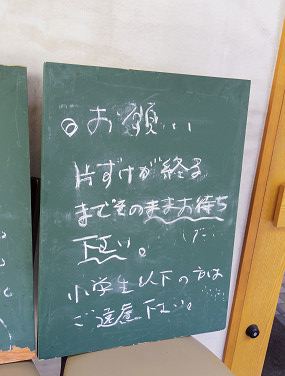 ◎お願い
片ずけが終る
までそのままお待ち
下さい。
小学生以下の方は
ご遠慮下さい。